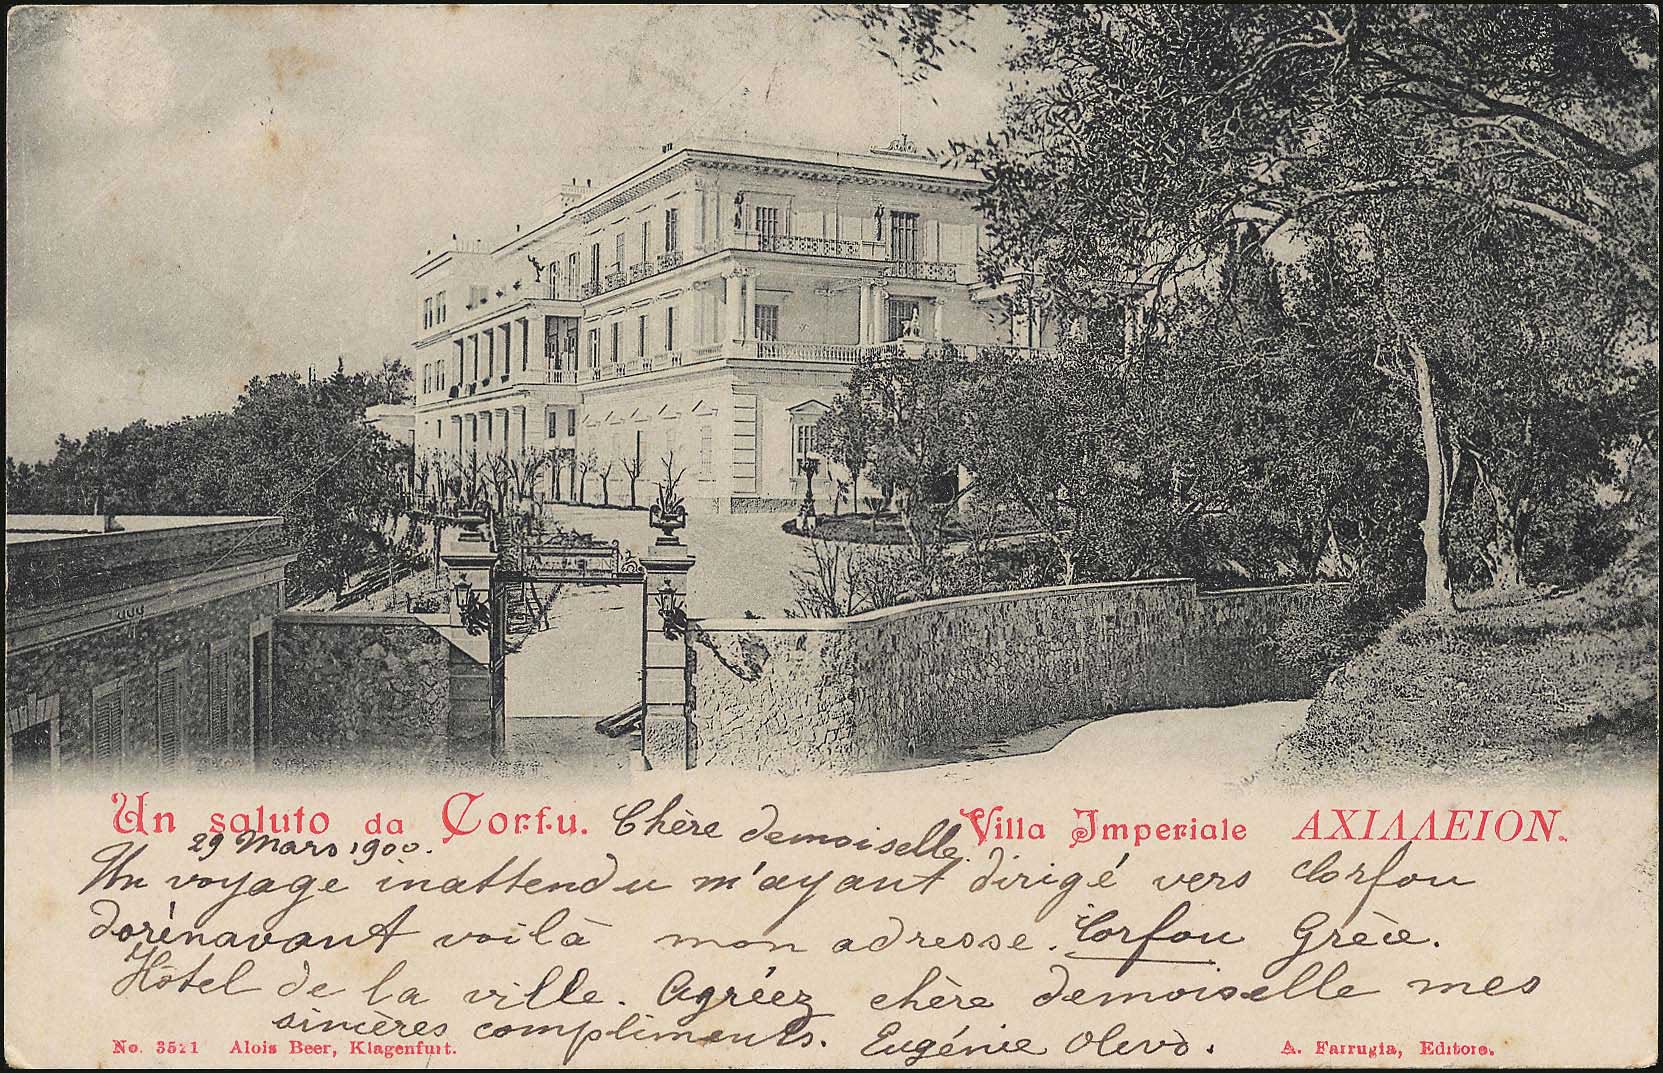 Un saluto da Corfu. Chère demoiselle. Villa Imperiale ΑΧΙΛΛΕΙΟΝ.
29 Mars 1900.
Un voyage inattendu m'ayant dirigé vers Corfou
dorénavant voilà mon adresse. Corfou Grèce.
Hôtel de la ville. Agréez chère demoiselle mes
sincères compliments. Eugénie Olevò.
No. 3521 Alois Beer, Klagenfurt. A. Farrugia, Editore.